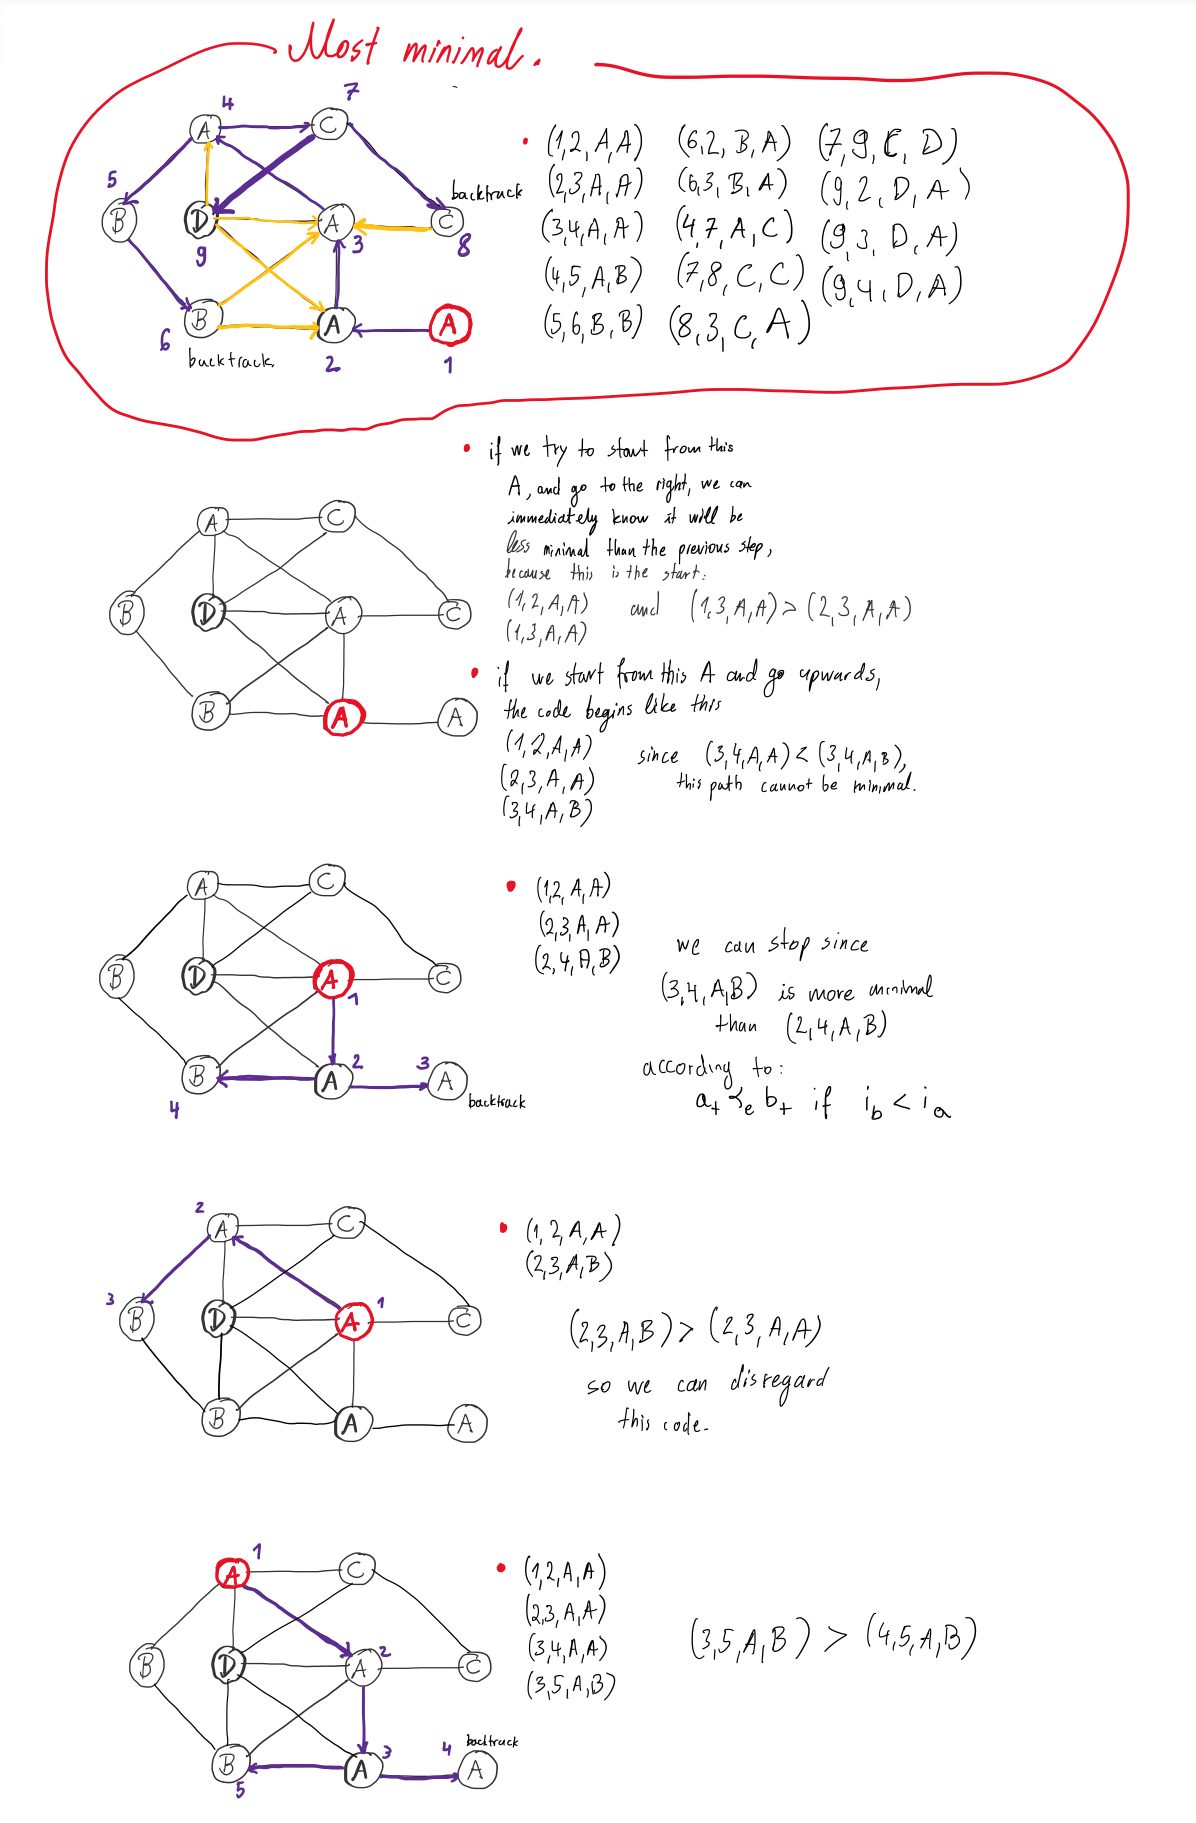 Most minimal.
4
7
A
C
5
backtrack
B
D
A
C
9
3
8
B
A
A
6
backtrack
2
1
(1,2, A,A) (6,2, B,A) (7,9, C, D)
(2,3, A, A) (6,3, B, A) (9,2, D, A)
(3,4, A, A) (4,7, A, C) (9,3, D, A)
(4,5, A,B) (7,8, C, C) (9,4, D, A)
(5,6, B, B) (8,3, C, A)
if we try to start from this
A, and go to the right, we can
immediately know it will be
less minimal than the previous step,
because this is the start:
(1,2, A, A) and (1,3, A,A) > (2,3, A, A)
(1,3, A, A)
A
C
B
D
A
C
B
A
A
if we start from this A and go upwards,
the code begins like this
(1,2, A, A)
(2,3, A, A)
(3,4, A, B)
since (3,4, A, A) < (3,4, A, B),
this path cannot be minimal.
A
C
B
D
A
C
1
2
3
B
A
A
4
backtrack
(1,2, A, A)
(2,3, A, A)
(2,4, A, B)
we can stop since
(3,4, A,B) is more minimal
than (2,4, A, B)
according to:
a₊ ≺ₑ b₊ if i_b < i_a
2
A
C
3
1
B
D
A
C
B
A
A
(1,2, A, A)
(2,3, A, B)
(2,3, A, B) > (2,3, A, A)
so we can disregard
this code.
1
A
C
B
D
A
2
C
backtrack
B
A
3
4
A
5
(1,2, A, A)
(2,3, A, A)
(3,4, A, A)
(3,5, A, B)
(3,5, A, B) > (4,5, A, B)